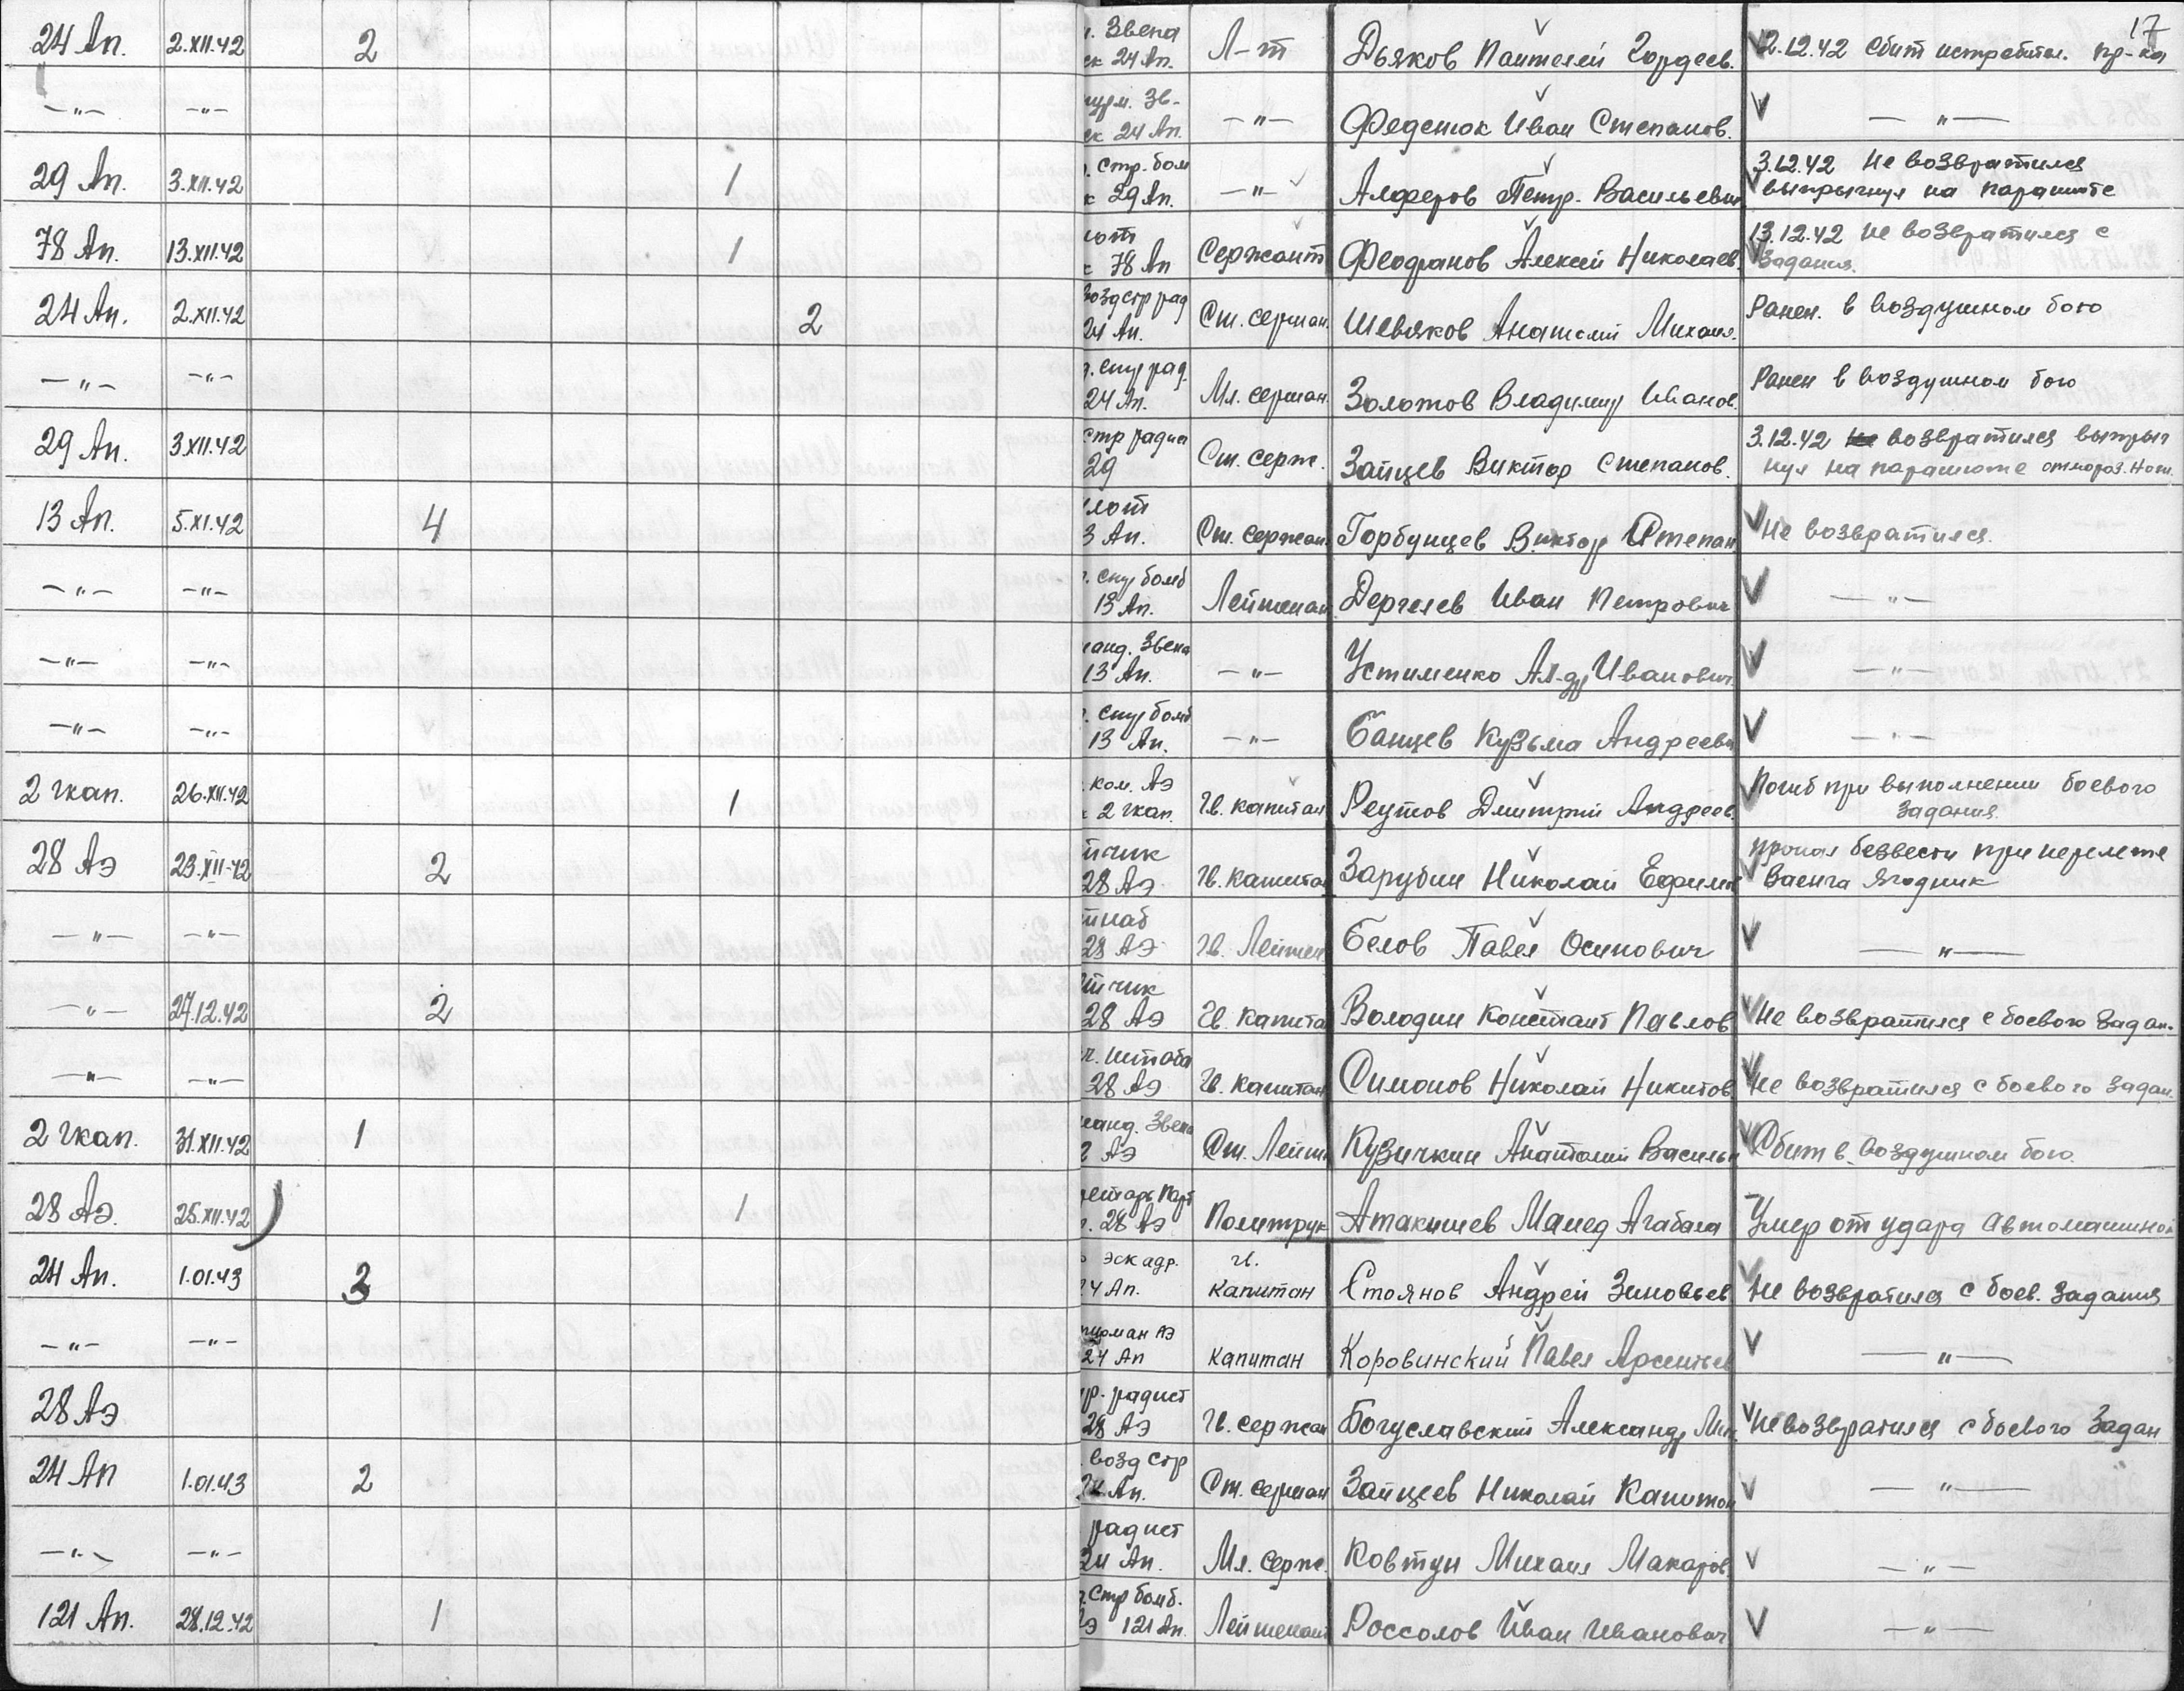 17
24 Ап. 2.XII.42 2 Звена Л-т Дьяков Пантелей Гордеев. 2.12.42 Сбит истребител. пр-ка
24 Ап.
—"— —"— —"— Феденюк Иван Степанов. —"—
24 Ап.
29 Ап. 3.XII.42 1 стр. бом —"— Алферов Петр. Васильевич 3.12.42 Не возвратился
29 Ап. выпрыгнул на парашюте
78 Ап. 13.XII.42 1 Сержант Феофанов Алексей Николаев. 13.12.42 не возвратился с
78 Ап задания.
24 Ап. 2.XII.42 2 возд стр рад Ст. сержан. Шевяков Анатолий Михаил. Ранен. в воздушном бою
24 Ап.
—"— —"— рад. Мл. сержан. Золотов Владимир Иванов. Ранен в воздушном бою
24 Ап.
29 Ап. 3.XII.42 стр радист Ст. серж. Зайцев Виктор Степанов. 3.12.42 возвратился выпрыг
29 нул на парашюте
13 Ап. 5.XI.42 4 Ст. сержан. Горбунцев Виктор Степан Не возвратился.
3 Ап.
—"— —"— бомб Лейтенан Дергилев Иван Петрович —"—
13 Ап.
—"— —"— манд. Звена —"— Устименко Ал-др Иванович. —"—
13 Ап.
—"— —"— бомб —"— Банцев Кузьма Андреевич —"—
13 Ап.
2 гкап. 26.XII.42 1 ком. Аэ Гв. капитан Реутов Дмитрий Андреев. Погиб при выполнении боевого
2 гкап. задания.
28 Аэ 23.XII.42 2 тчик Гв. капитан Зарубин Николай Ефимов пропал безвести при перелете
28 Аэ. Ваенга Ягодник
—"— —"— тнаб Гв. Лейтен Белов Павел Осипович —"—
28 Аэ
—"— 27.12.42 2 тчик Гв. капита Володин Констант Павлов Не возвратился с боевого задан.
28 Аэ
—"— —"— штаба Гв. капитан Симонов Николай Никитов Не возвратился с боевого задан.
28 Аэ
2 гкап. 31.XII.42 1 манд. Звена Ст. Лейтн Кузичкин Анатолий Василь Сбит в воздушном бою.
2 Аэ
28 Аэ. 25.XII.42 1 ретарь Парт Политрук Атакишев Мамед Агабала Умер от удара автомашиной
28 Аэ
24 Ап. 1.01.43 2 эскадр. гв. капитан Стоянов Андрей Зиновьев Не возвратился с боев. задания
24 Ап.
—"— —"— турман АЭ капитан Коровинский Павел Арсентьев —"—
24 Ап
28 Аэ радист Гв. сержан Богуславский Александр Мих. Невозвратился с боевого Задан
28 Аэ
24 Ап 1.01.43 2 возд стр Ст. сержан Зайцев Николай Капитон —"—
24 Ап.
—"— —"— радист Мл. серж. Ковтун Михаил Макаров. —"—
24 Ап.
121 Ап. 28.12.42 1 Стр бомб. Лейтенант Россолов Иван Иванович —"—
Аэ 121 Ап.